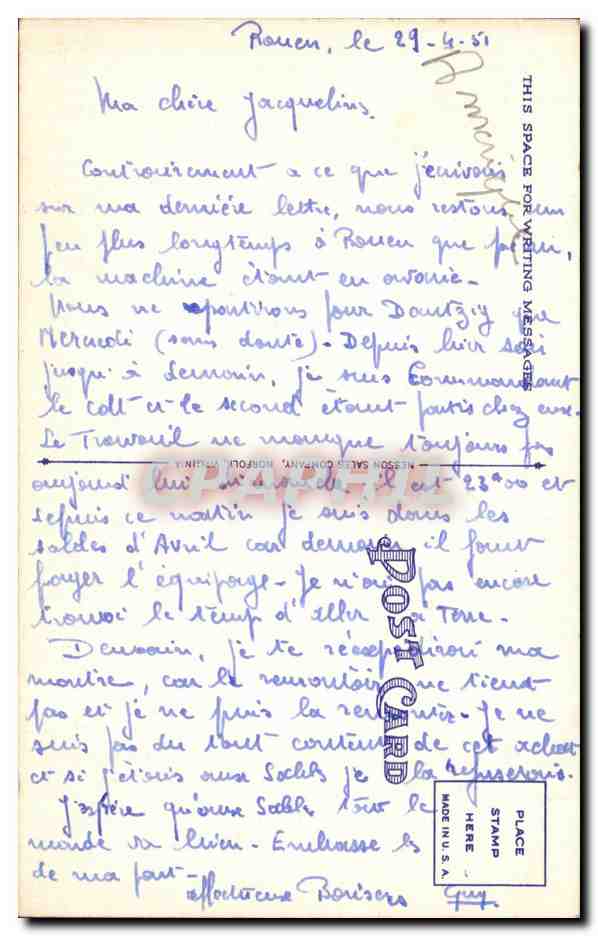 Rouen, le 29-4-51
Ma chère Jacqueline.
Contrairement a ce que j'écrivais
sur ma dernière lettre, nous restons un
peu plus longtemps à Rouen que prévu,
la machine étant en avarie-
Nous ne repartirons pour Dantzig que
Mercredi (sans doute)- Depuis hier soir
jusqu'à demain, je suis Commandant
le cdt et le second étant partis chez eux-
Le Travail ne manque toujours pas
aujourd'hui il est 23h00 et
depuis ce matin je suis dans les
soldes d'Avril car demain il faut
payer l'équipage- Je n'ai pas encore
trouvé le temps d'aller à Terre-
Demain, je te réexpédierai ma
montre, car le remontoir ne tient
pas et je ne puis la remonter- Je ne
suis pas du tout content de cet achat
et si j'étais aux Sables je la refuserais-
J'espère qu'aux Sables tout le
monde va bien- Embrasse les
de ma part-
Affectueux Baisers Guy
THIS SPACE FOR WRITING MESSAGES
NESSON SALES COMPANY, NORFOLK, VIRGINIA
POST CARD
PLACE
STAMP
HERE
MADE IN U.S.A.
CPAPHIL